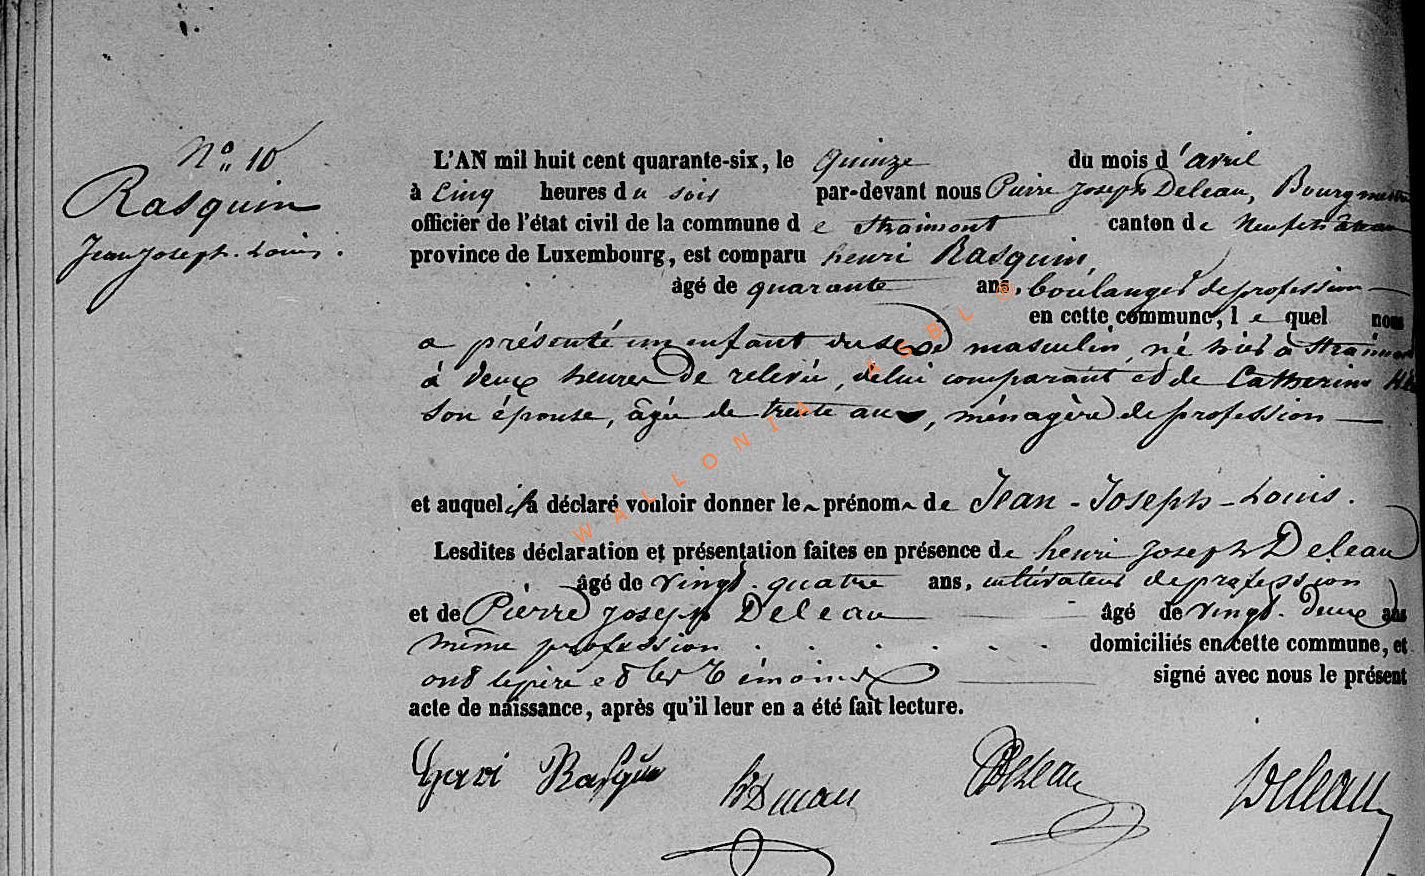 N° 10
Rasquin
Jean Joseph. Louis.
L'AN mil huit cent quarante-six, le quinze du mois d'avril
à cinq heures du soir par-devant nous Pierre Joseph Deleau, Bourgmestre
officier de l'état civil de la commune de Straimont canton de Neufchâteau
province de Luxembourg, est comparu henri Rasquin
âgé de quarante ans, boulanger de profession
en cette commune, lequel nous
a présenté un enfant du sexe masculin, né hier à Straimont
à deux heures de relevée, de lui comparant et de Catherine
son épouse, âgée de trente ans, ménagère de profession
et auquel il a déclaré vouloir donner le prénom de Jean-Joseph-Louis.
Lesdites déclaration et présentation faites en présence de henri Joseph Deleau
âgé de vingt-quatre ans, cultivateur de profession
et de Pierre Joseph Deleau âgé de vingt-deux ans
même profession domiciliés en cette commune, et
ont le père et les témoins signé avec nous le présent
acte de naissance, après qu'il leur en a été fait lecture.
Henri Rasquin Deleau Deleau
WALLONIA ASBL ©